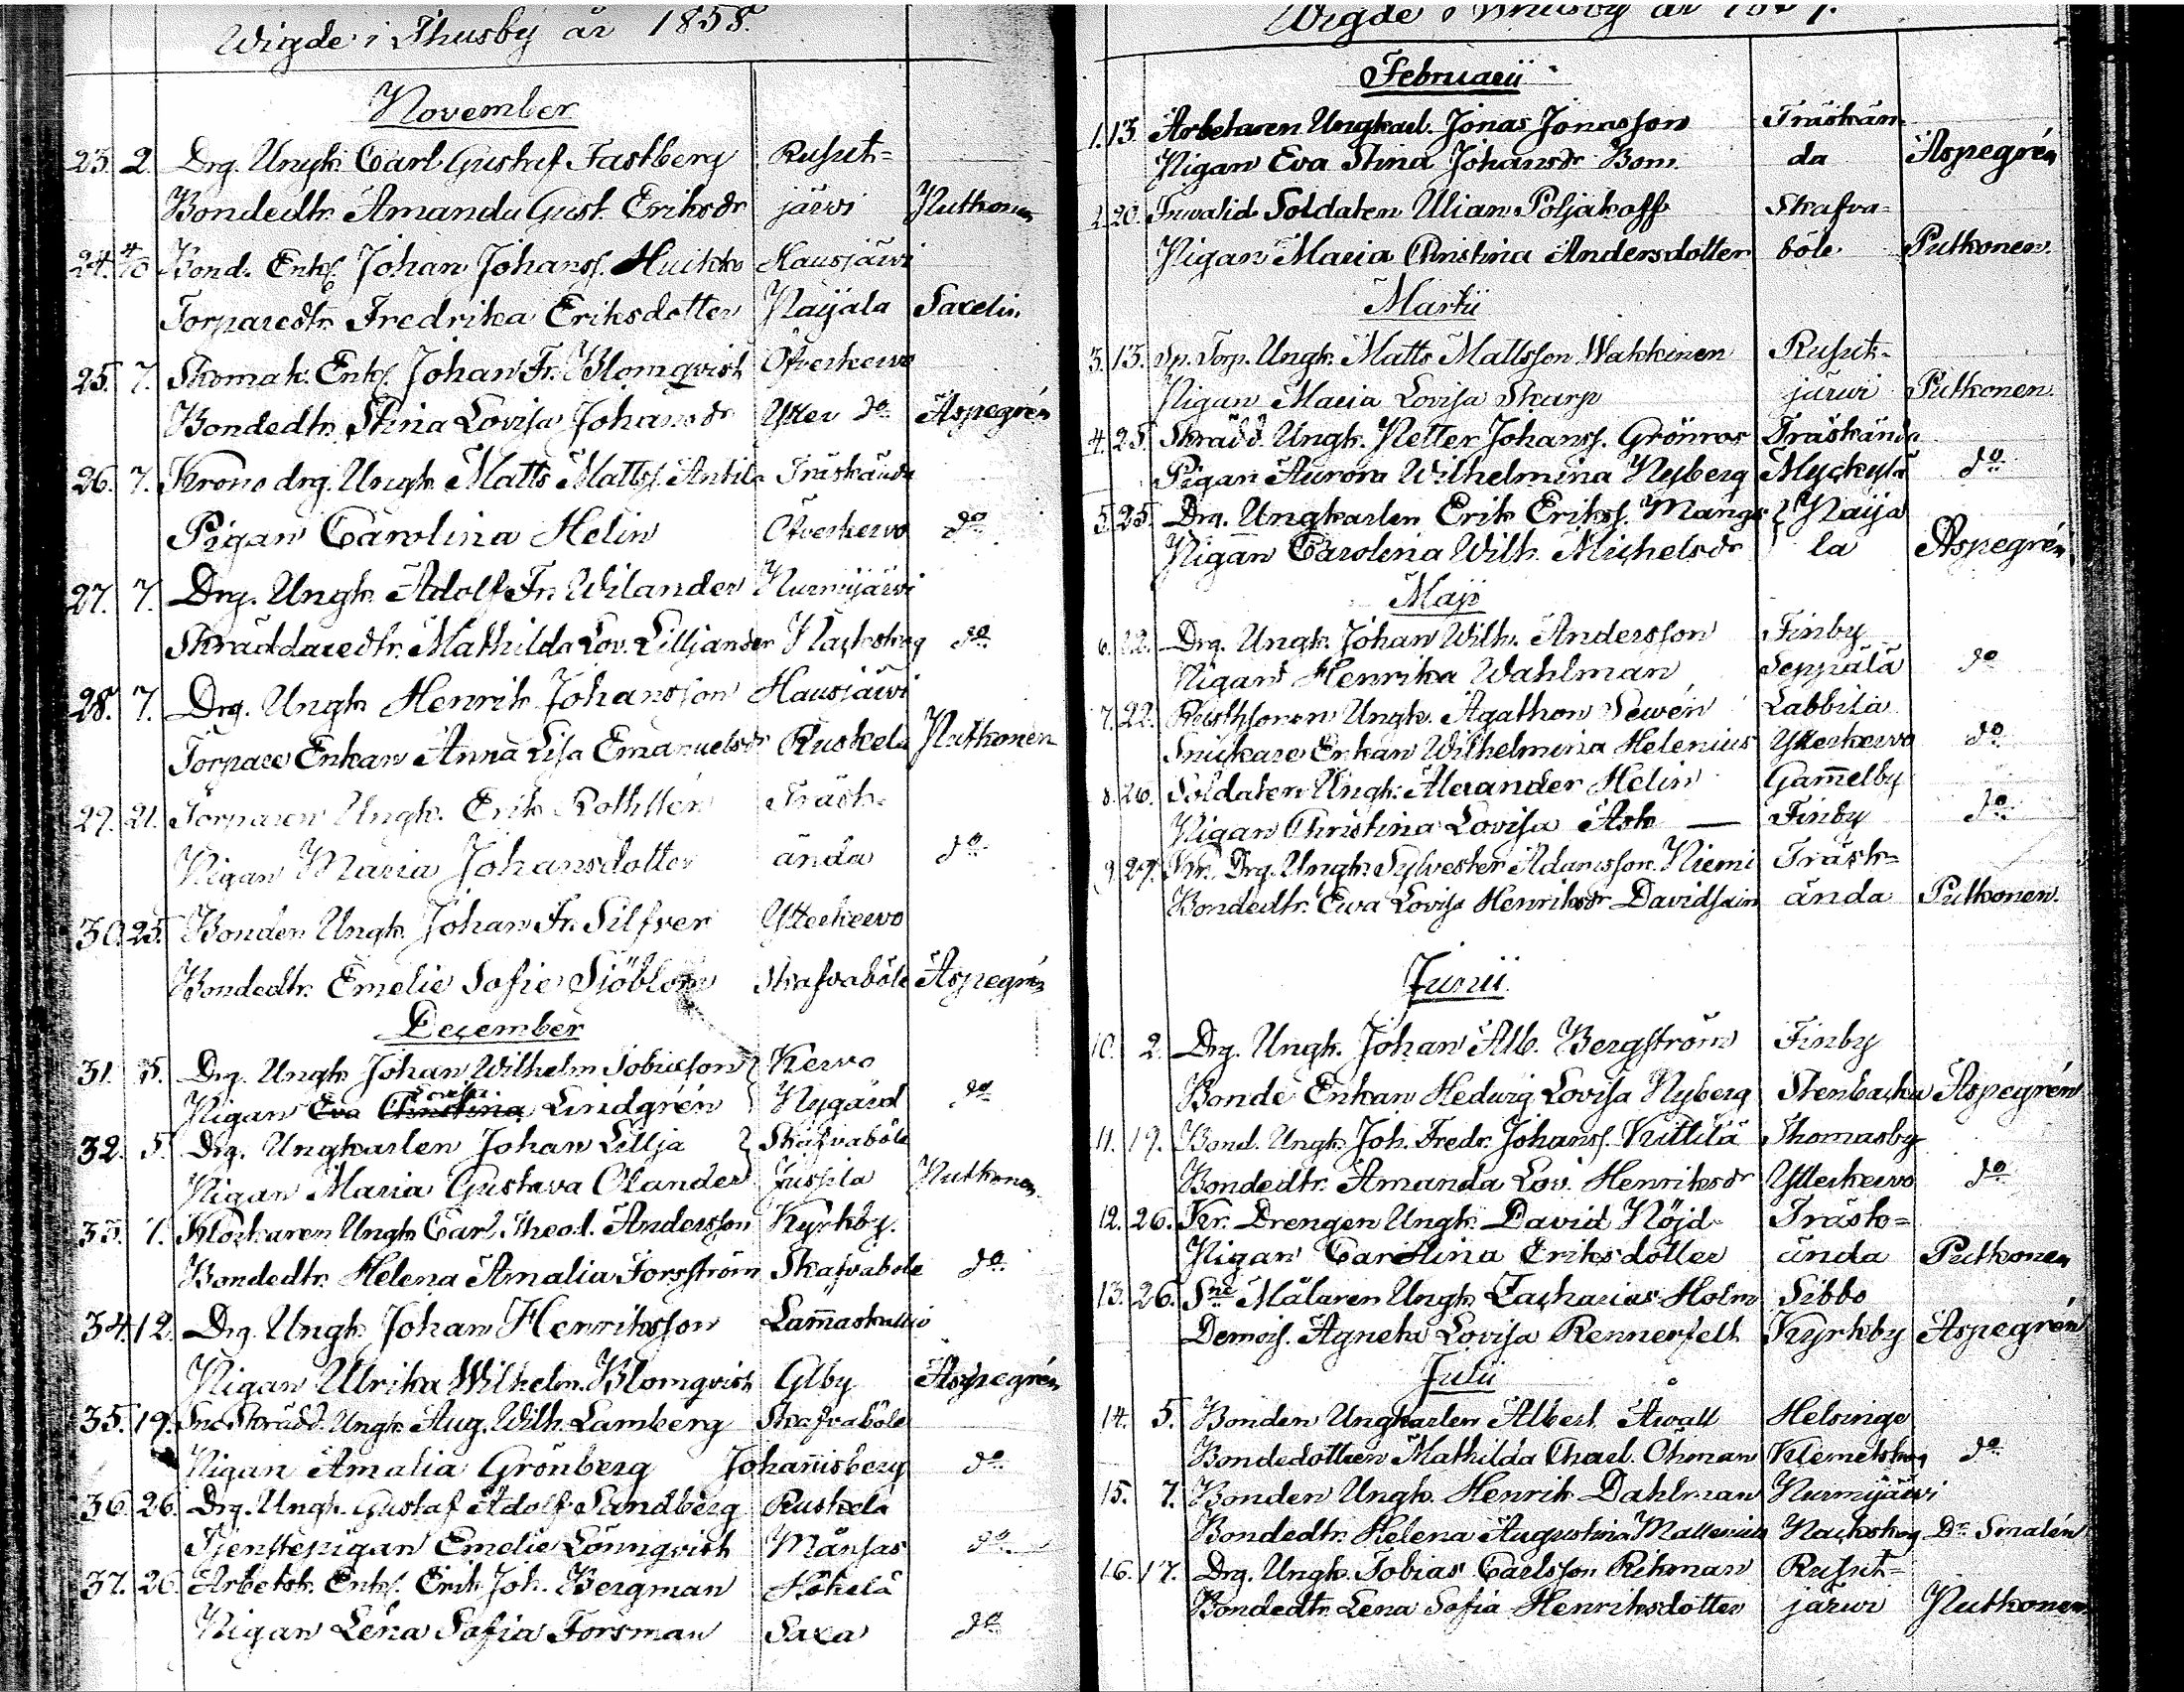 Wigde i Thusby år 1858.
November
23. 2. Drg. Ungk. Carl Gustaf Fastberg Rusut=
Bondedtr. Amanda Gust. Eriksdr järvi Putkonen
24. 4/10 Bond. Enkl. Johan Johanss. Huikko Hausjärvi
Torparedtr. Fredrika Eriksdotter Paijala Saxelin
25. 7. Skomak. Enkl. Johan Fr. Blomqvist Öfverkervo
Bondedtr. Stina Lovisa Johansdr Ytter do Aspegrén
26. 7. Krono drg. Ungk. Matts Matts. Antila Träskända
Pigan Carolina Helin Öfverkervo do
27. 7. Drg. Ungk. Adolf Fr. Wilander Nurmijärvi
Skräddaredtr. Mathilda Lov. Lilljander Nackskog do
28. 7. Drg. Ungk. Henrik Johansson Hausjärvi
Torpare Enkan Anna Lisa Emanuelsdr Ruskela Putkonen
29. 21. Torparen Ungk. Erik Rothstén Träsk=
Pigan Maria Johansdotter ända do
30. 25. Bonden Ungk. Johan Fr. Silfver Ytterkervo
Bondedtr. Emelie Sofie Sjöblom Skafvaböle Aspegrén
December
31. 5. Drg. Ungk. Johan Wilhelm Tobiasson Kervo
Lovisa
Pigan Eva Christina Lindgrén Nygård do
32. 5. Drg. Ungkarlen Johan Lillja Skafvaböle
Pigan Maria Gustava Olander Jussila Putkonen
33. 7. Klockaren Ungk. Carl Theod. Andersson Kyrkby.
Bondedtr. Helena Amalia Forsström Skafvaböle do
34. 12. Drg. Ungk. Johan Henriksson Lam̄askallio
Pigan Ulrika Wilhelm. Blomqvist Glby Aspegrén
35. 19. Sne Skrädd. Ungk. Aug. Wilh. Lamberg Skafvaböle
Pigan Amalia Grönberg Johannisberg do
36. 26. Drg. Ungk. Gustaf Adolf Sandberg Ruskela
Tjenstepigan Emelie Lönnqvist Månsas do
37. 26. Arbetsk. Enkl. Erik Joh. Bergman Hökelä
Pigan Lena Sofia Forsman Saxa do
Wigde i Thusby år
Februarii
1. 13. Arbetaren Ungkarl. Jonas Jonasson Träskän
Pigan Eva Stina Johansdr Bom. da Aspegrén
2. 20. Invalid Soldaten Ulian Poljakoff Skafva=
Pigan Maria Christina Andersdotter böle Putkonen.
Martii
3. 13. Sp. Torp. Ungk. Matts Mattsson Wakkinen Rusut=
Pigan Maria Lovisa Skarp järvi Putkonen.
4. 25. Skrädd. Ungk. Petter Johanss. Grönroos Träskända
Pigan Aurora Wilhelmina Nyberg Myckylä do
5. 25. Drg. Ungkarlen Erik Erikss. Mangs Paija
Pigan Carolina Wilh. Michelsdr la Aspegrén
Maji
6. 22. Drg. Ungk. Johan Wilh. Andersson Finby
Pigan Henrika Wahlman Seppälä do
7. 22. Rusthsonen Ungk. Agathon Sewén Labbila
Snickare Enkan Wilhelmina Helenius Ytterkervo do
8. 26. Soldaten Ungk. Alexander Helin Gam̄elby
Pigan Christina Lovisa Ask — Finby do
9. 29. Kr. Drg. Ungk. Sylvester Adamsson Niemi Träsk=
Bondedtr. Ewa Lovisa Henriksdr Davidsain ända Putkonen.
Junii
10. 2. Drg. Ungk. Johan Alb. Bergström Finby
Bonde Enkan Hedvig Lovisa Nyberg Stenbacka Aspegrén
11. 19. Bond. Ungk. Joh. Fredr. Johanss. Kuttilä Thomasby
Bondedtr. Amanda Lov. Henriksdr Ytterkervo do
12. 26. Kr. Drengen Ungk. David Nöjd Träsk=
Pigan Carolina Eriksdotter ända Putkonen
13. 26. Sne Målaren Ungk. Zacharias Holm Sibbo
Demois. Agneta Lovisa Rennerfelt Kyrkby Aspegrén
Julii
14. 5. Bonden Ungkarlen Albert Åwall Helsinge
Bondedottren Mathilda Charl. Öhman Klemetskog do
15. 7. Bonden Ungk. Henrik Dahlman Nurmijärvi
Bondedtr. Helena Augustina Mattenius Nackskog Dr Smalén
16. 17. Drg. Ungk. Tobias Carlsson Rikman Rusut=
Bondedtr. Lena Sofia Henriksdotter järvi Putkonen